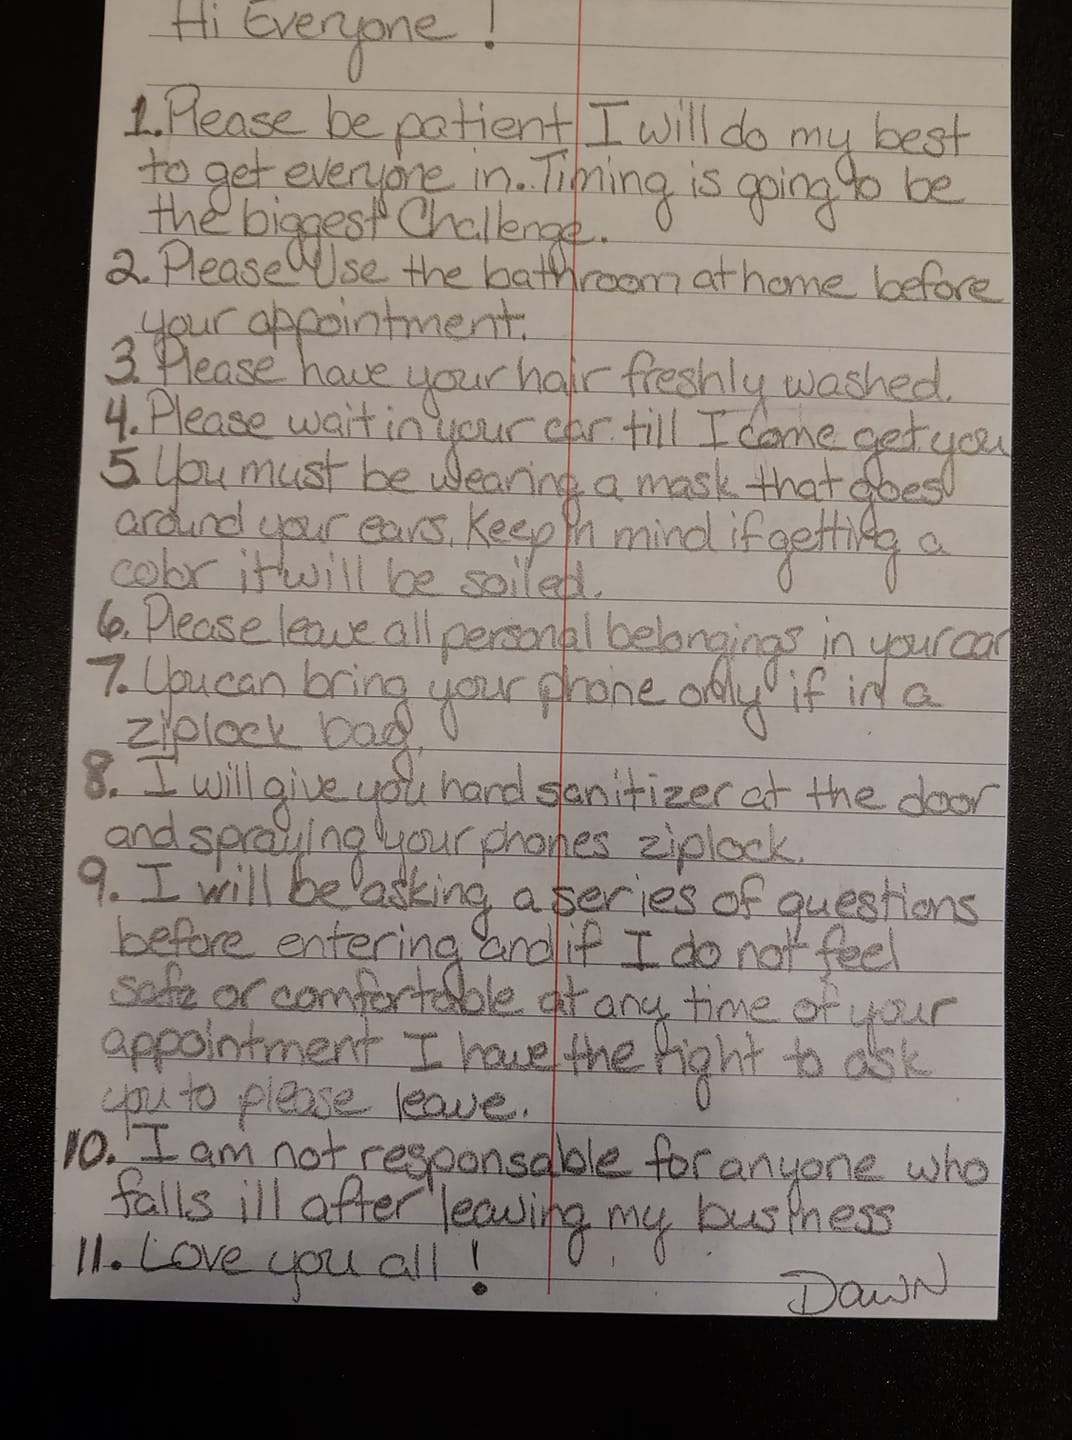 Hi Everyone!
1. Please be patient I will do my best
to get everyone in.. Timing is going to be
the biggest Challenge.
2. Please Use the bathroom at home before
your appointment.
3. Please have your hair freshly washed.
4. Please wait in your car till I come get you
5. You must be wearing a mask that goes
around your ears. Keep in mind if getting a
color it will be soiled.
6. Please leave all personal belongings in your car
7. You can bring your phone only if in a
ziplock bag.
8. I will give you hand sanitizer at the door
and spraying your phones ziplock.
9. I will be asking a series of questions
before entering and if I do not feel
safe or comfortable at any time of your
appointment I have the right to ask
you to please leave.
10. I am not responsable for anyone who
falls ill after leaving my business
11. Love you all!
Dawn